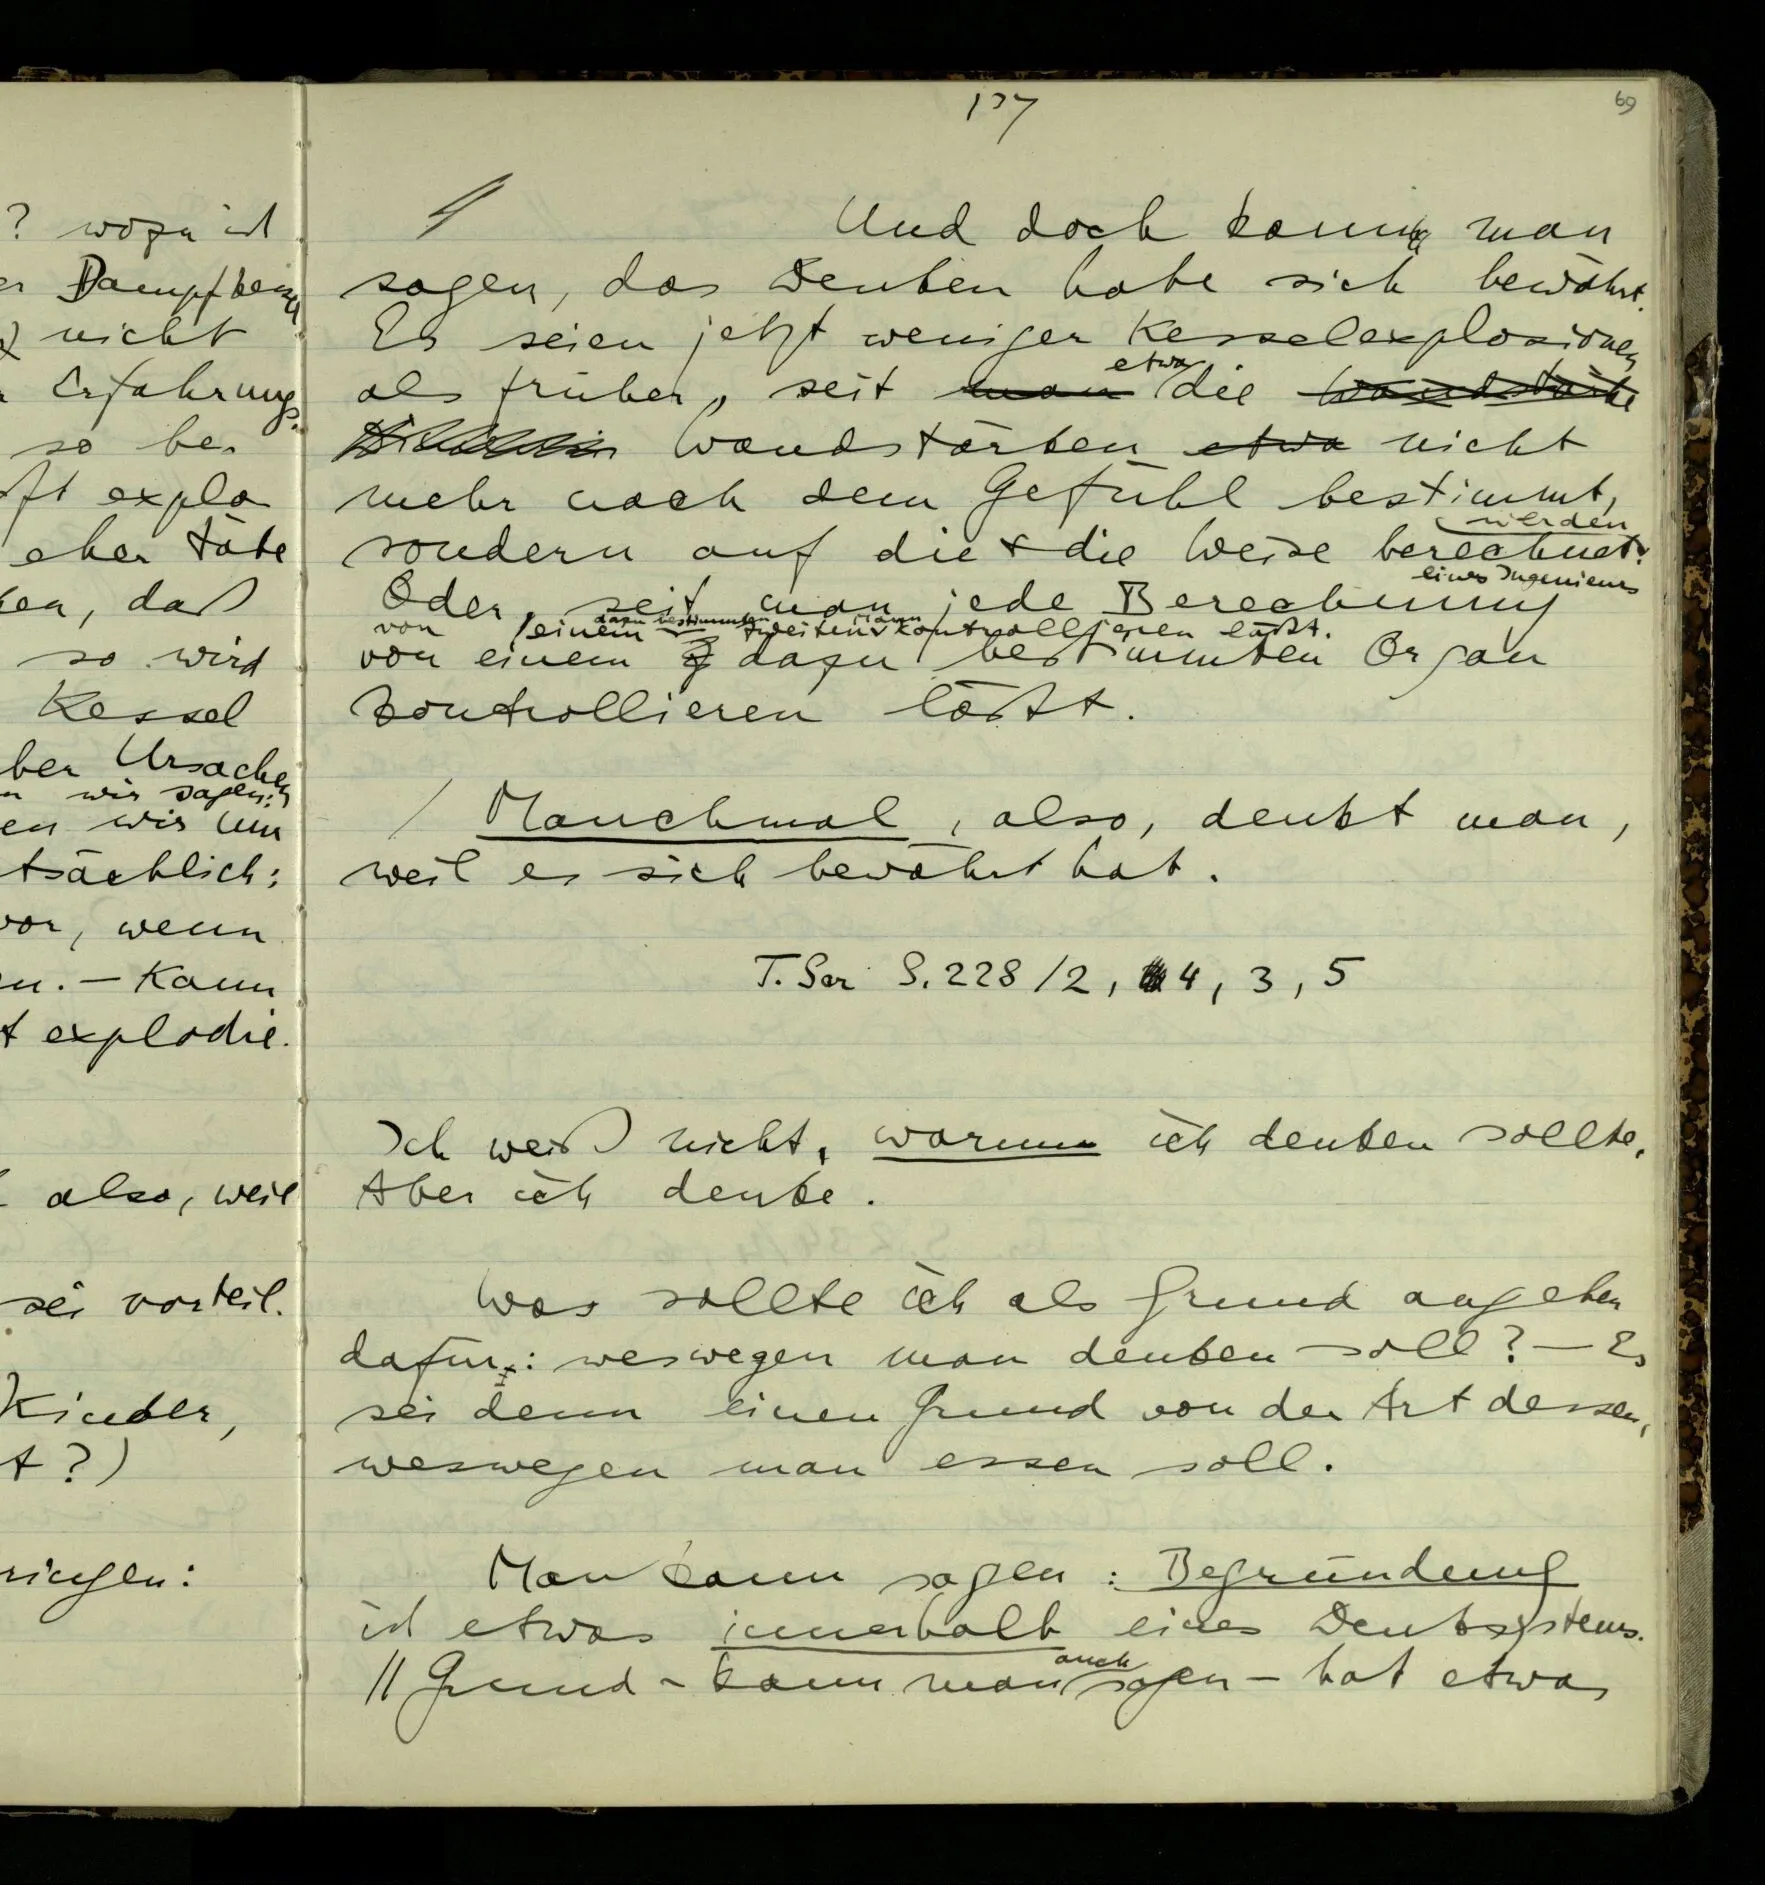 ? wozu ist
Dampfkessel
nicht
Erfahrung.
so be-
oft explo
eher täte
ken, daß
so wird
Kessel
ber Ursachen
n wir sagen:
en wir um
tsächlich:
vor, wenn
en. – Kann
t explodie.
also, weil
sei vorteil.
Kinder,
t?)
ringen:
137
69
Und doch kann man
sagen, das Denken habe sich bewährt.
Es seien jetzt weniger Kesselexplosionen
als früher, seit man etwa die Wandstärke
Wandstärken etwa nicht
mehr nach dem Gefühl bestimmt,
werden
sondern auf die & die Weise berechnet.
eines Ingenieurs
Oder, seit man jede Berechnung
dazu bestimmten Mann
von einem zweiten kontrollieren läßt.
von einem dazu bestimmten Organ
kontrollieren läßt.
/ Manchmal, also, denkt man,
weil es sich bewährt hat.
T. Ser S. 228/2, 4, 3, 5
Ich weiß nicht, warum ich denken sollte.
Aber ich denke.
Was sollte ich als Grund angeben
dafür: weswegen man denken soll? – Es
sei denn einen Grund von der Art dessen,
weswegen man essen soll.
Man kann sagen: Begründung
ist etwas innerhalb eines Denksystems.
// Grund – kann man auch sagen – hat etwas